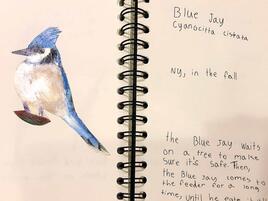 Blue Jay
Cyanocitta cistata
NY, in the fall
the Blue Jay waits
on a tree to make
sure it's safe. Then,
the Blue Jay comes to
the feeder for a long
time, until he eats